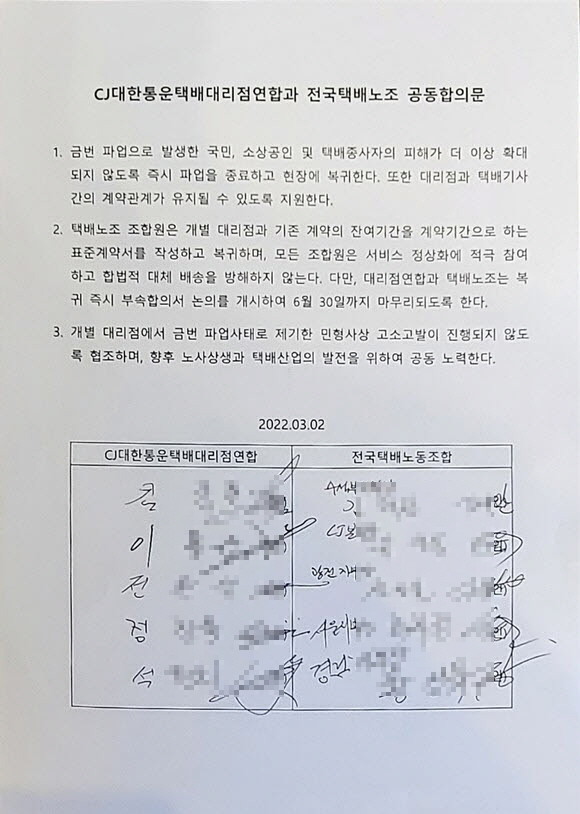 CJ대한통운택배대리점연합과 전국택배노조 공동합의문
1. 금번 파업으로 발생한 국민, 소상공인 및 택배종사자의 피해가 더 이상 확대
되지 않도록 즉시 파업을 종료하고 현장에 복귀한다. 또한 대리점과 택배기사
간의 계약관계가 유지될 수 있도록 지원한다.
2. 택배노조 조합원은 개별 대리점과 기존 계약의 잔여기간을 계약기간으로 하는
표준계약서를 작성하고 복귀하며, 모든 조합원은 서비스 정상화에 적극 참여
하고 합법적 대체 배송을 방해하지 않는다. 다만, 대리점연합과 택배노조는 복
귀 즉시 부속합의서 논의를 개시하여 6월 30일까지 마무리되도록 한다.
3. 개별 대리점에서 금번 파업사태로 제기한 민형사상 고소고발이 진행되지 않도
록 협조하며, 향후 노사상생과 택배산업의 발전을 위하여 공동 노력한다.
2022.03.02
CJ대한통운택배대리점연합 전국택배노동조합
이
전
정
석